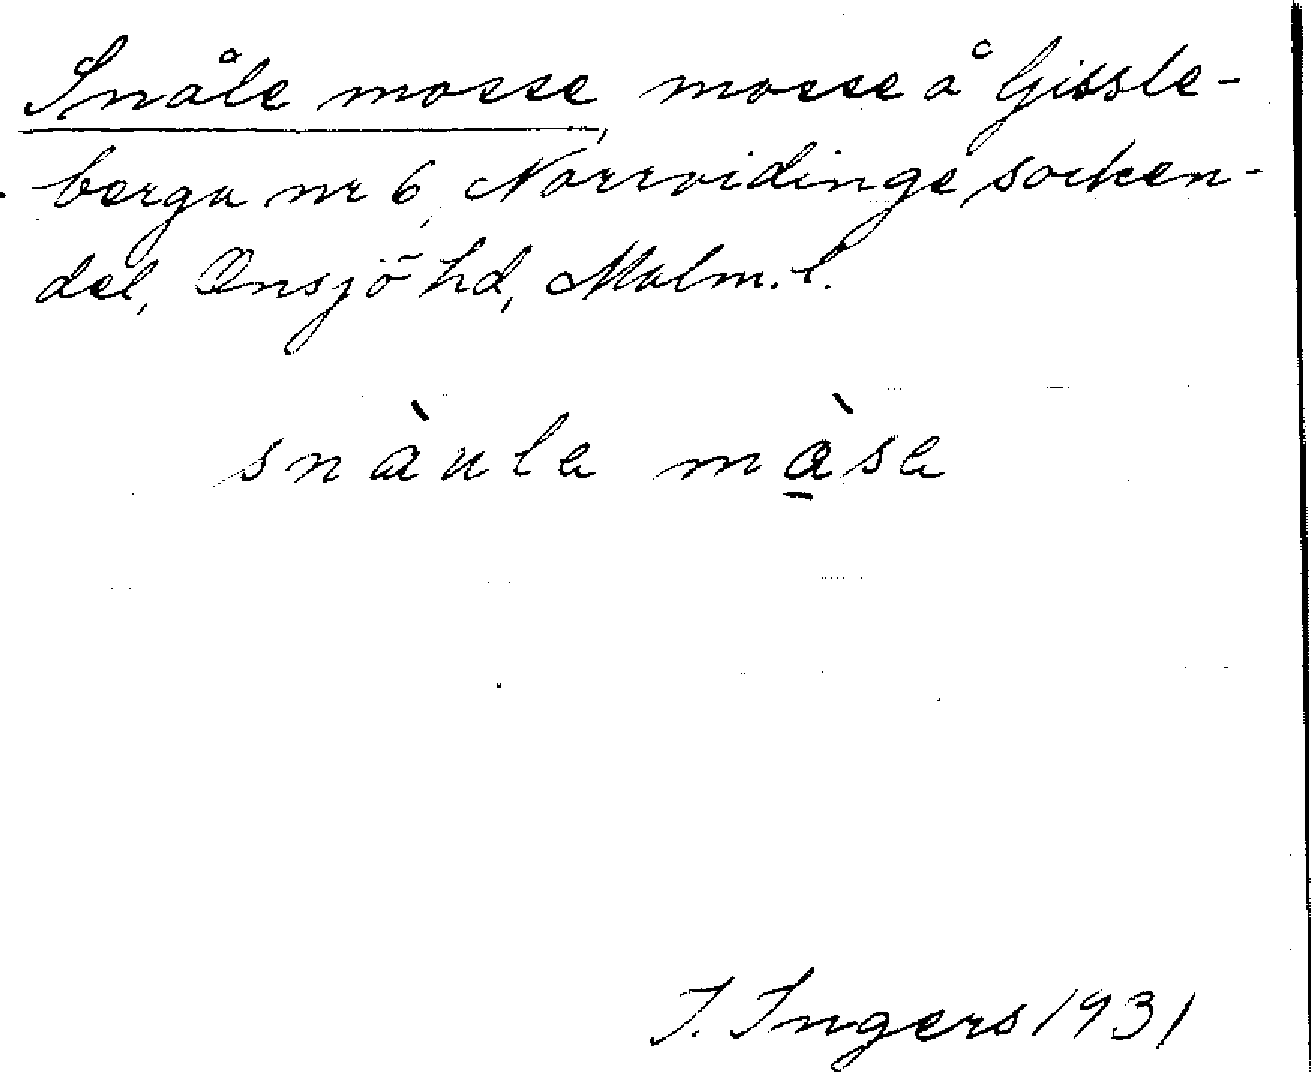 Snåle mosse, mosse å Gissle-
berga nr 6, Norrvidinge socken-
del, Onsjö hd, Malm. l.
snàula mà̱sa
I. Ingers 1931